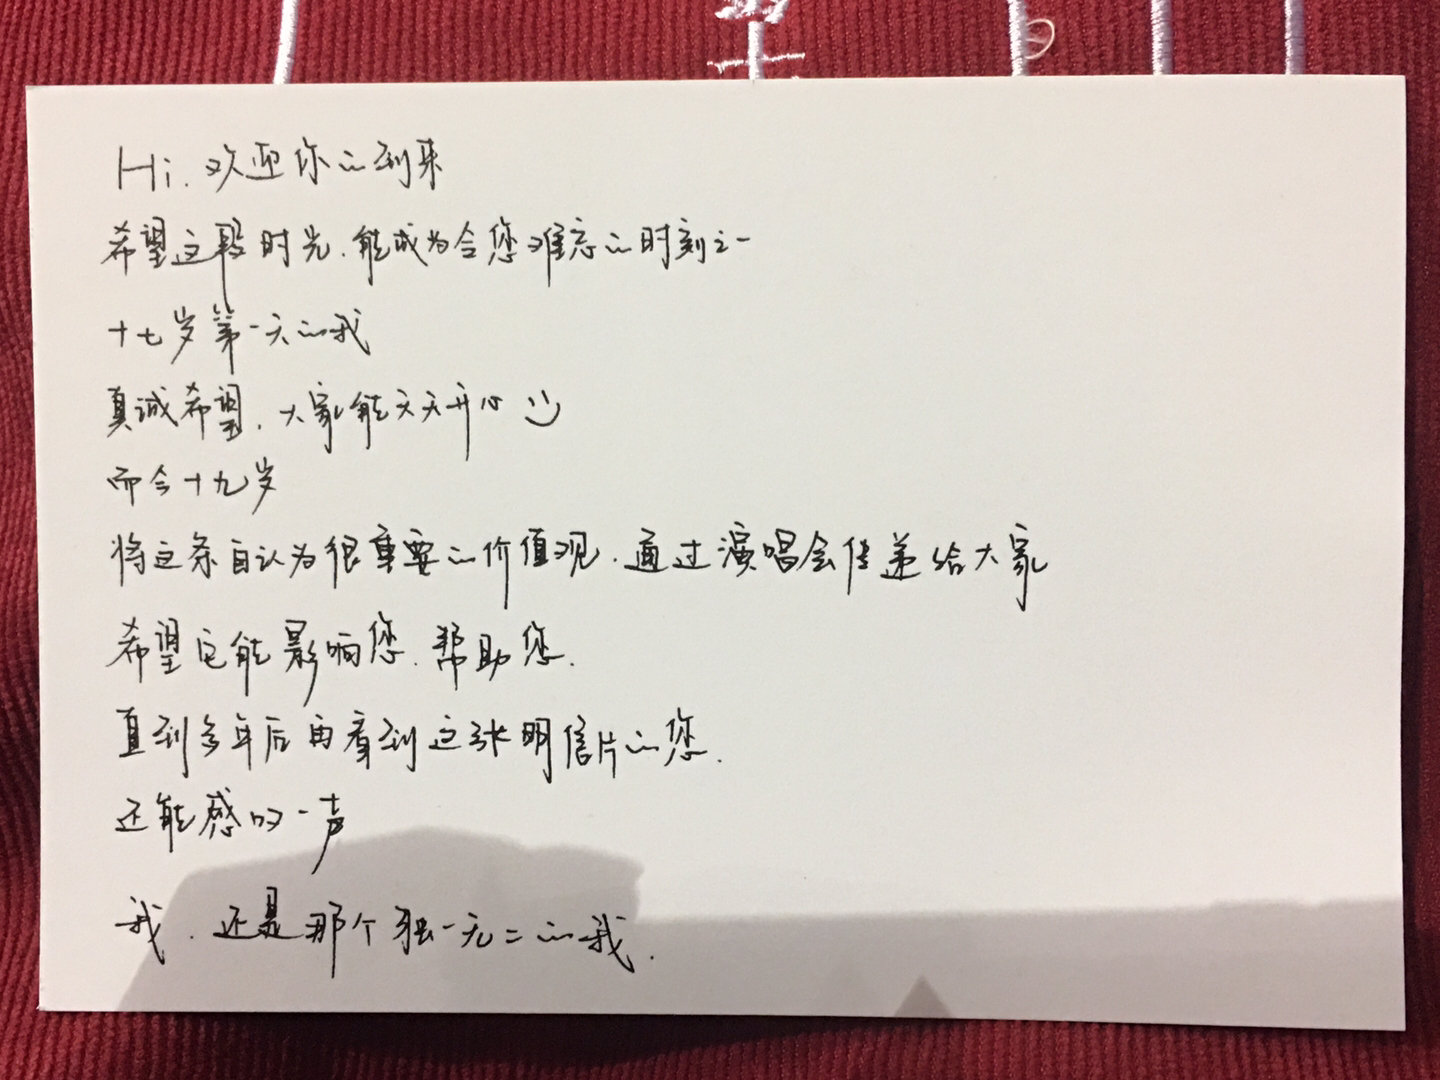 Hi. 欢迎你的到来
希望这段时光.能成为令您难忘的时刻之一
十七岁第一天的我
真诚希望.大家能天天开心
而今十九岁
将这条自认为很重要的价值观.通过演唱会传递给大家
希望它能影响您.帮助您.
直到多年后再看到这张明信片的您.
还能感叹一声
我.还是那个独一无二的我.